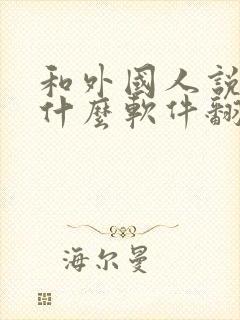 和外國人說
什麼軟件翻
海尔曼